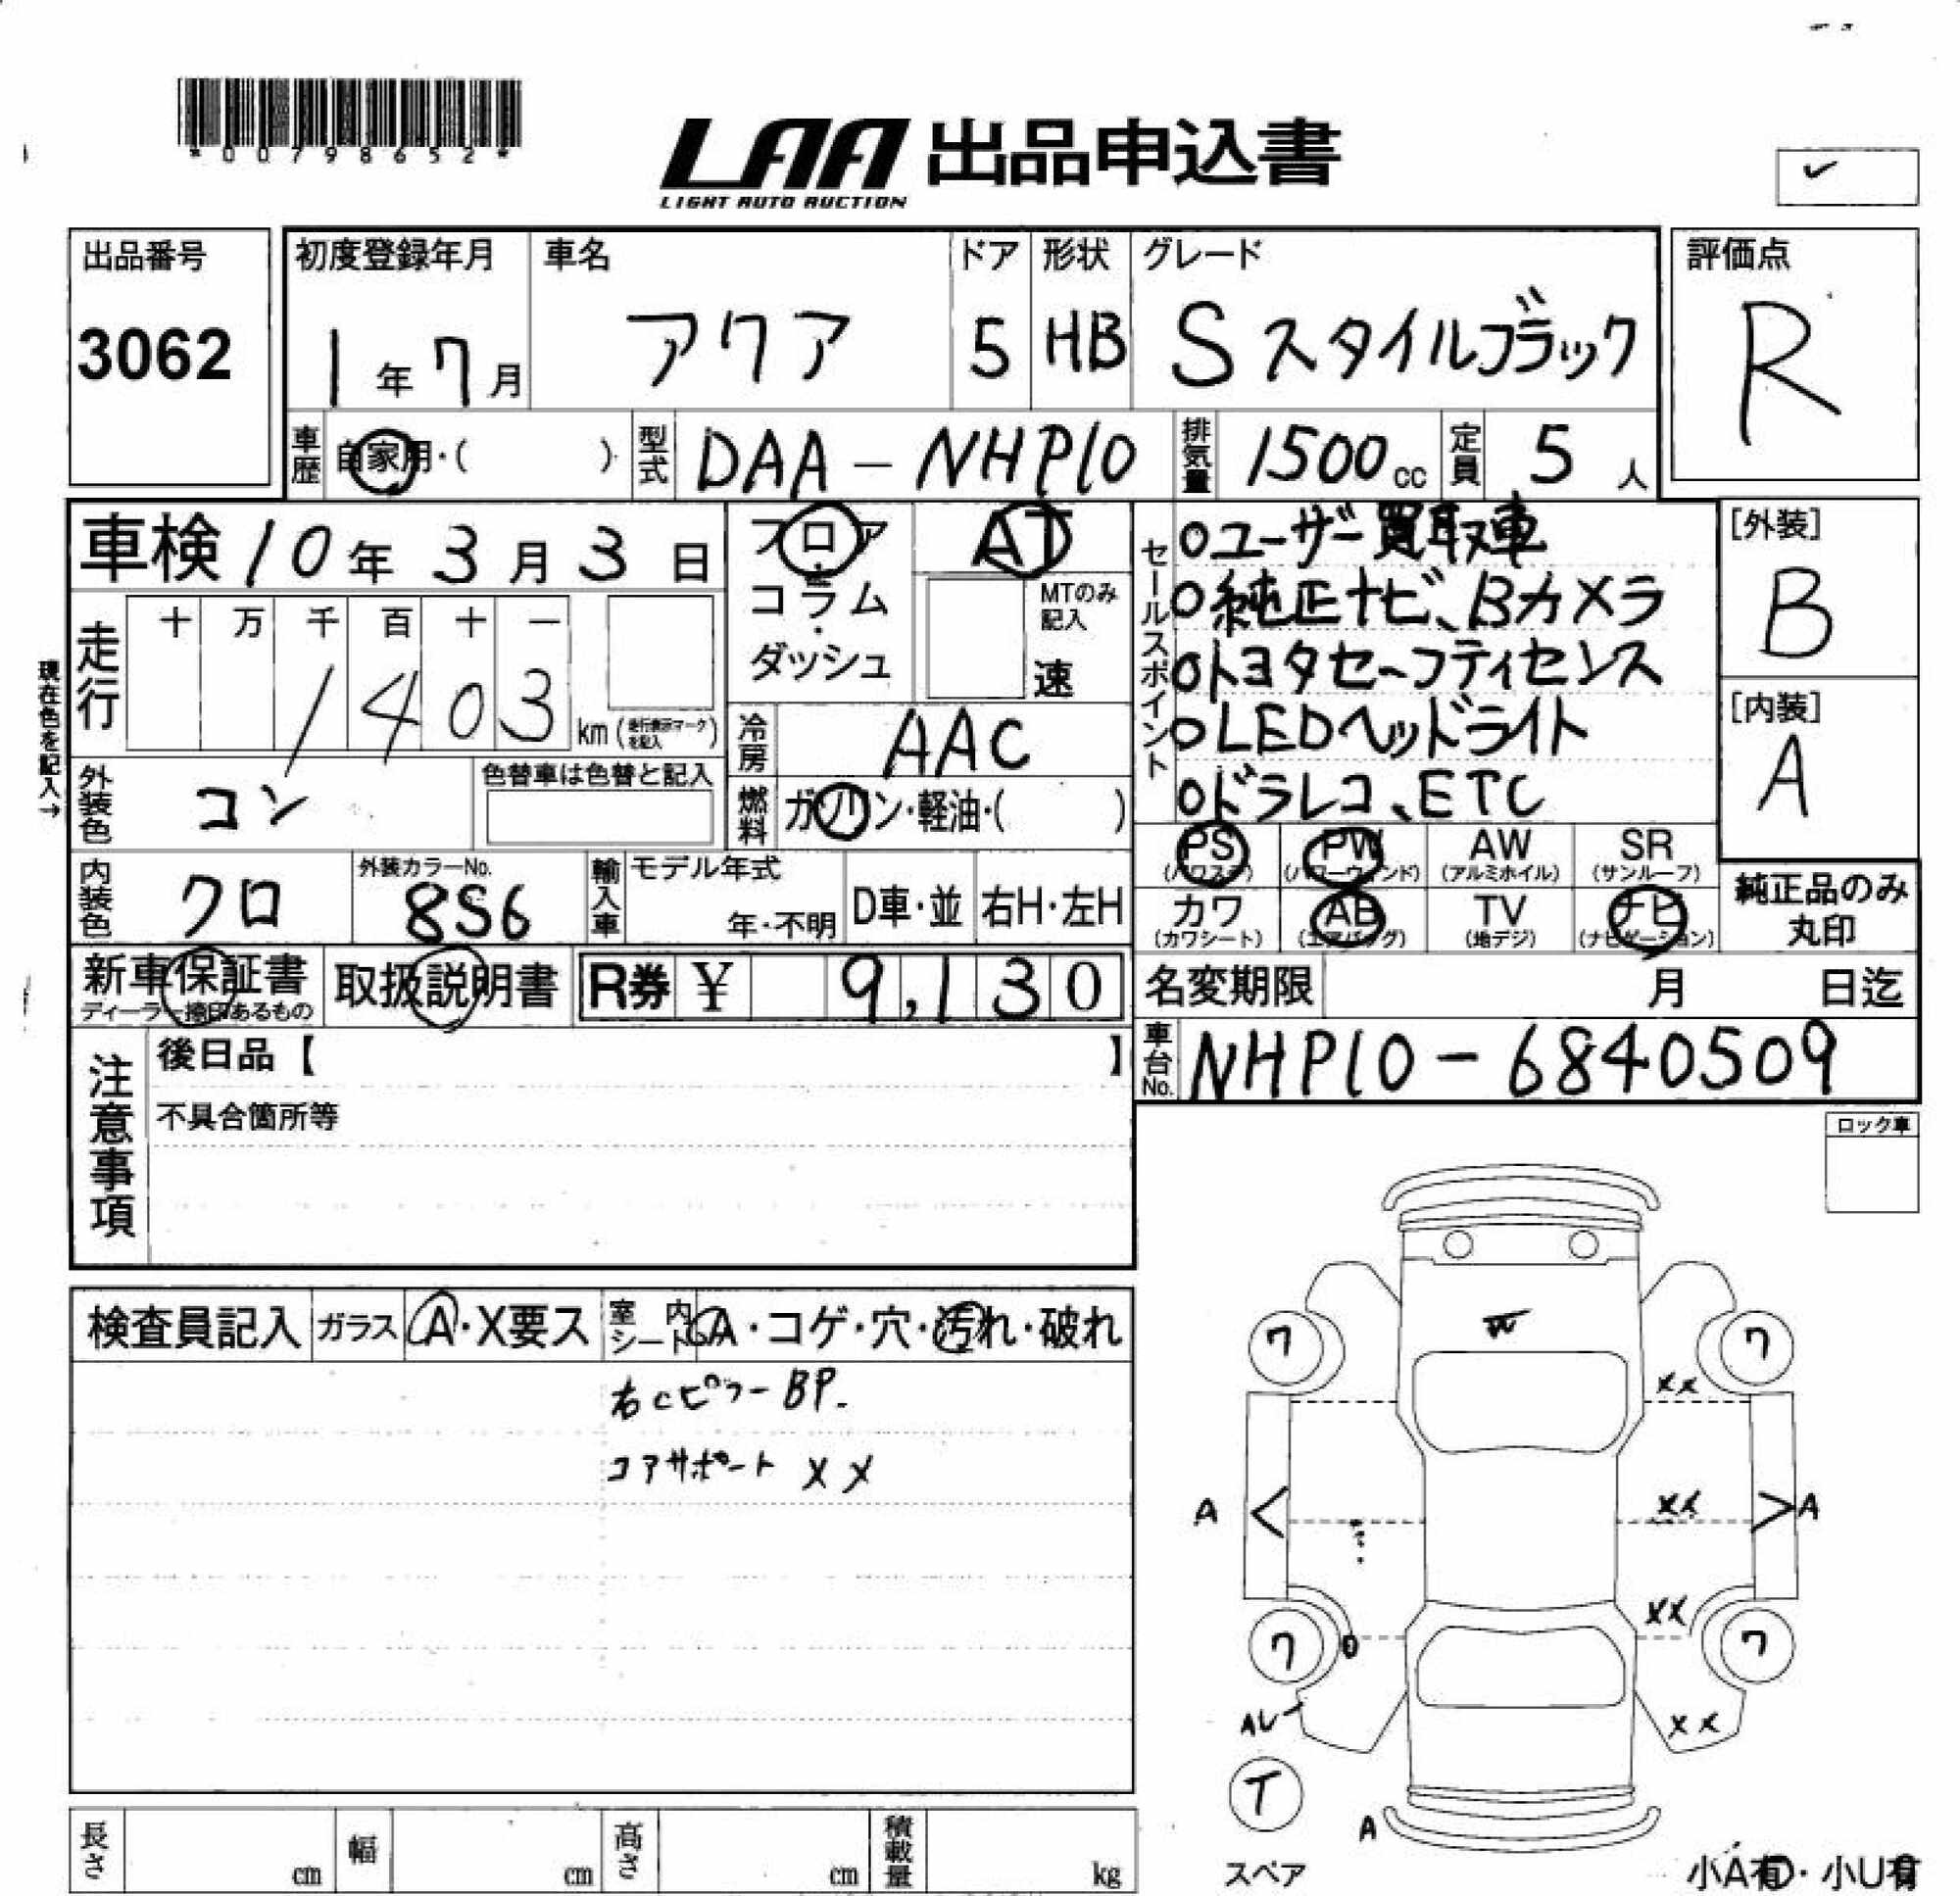 *00798652*
LAA 出品申込書
LIGHT AUTO AUCTION
出品番号
3062
初度登録年月
1年7月
車名
アクア
ドア
5
形状
HB
グレード
Sスタイルブラック
評価点
R
車歴
自家用・( )
型式
DAA-NHP10
排気量
1500cc
定員
5人
車検 10年3月3日
フロア
コラム
・
ダッシュ
AT
MTのみ記入
速
セールスポイント
○ユーザー買取車
○純正ナビ、Bカメラ
○トヨタセーフティセンス
○LEDヘッドライト
○ドラレコ、ETC
[外装]
B
[内装]
A
現在色を記入→
走行
十 万 千 百 十 一
1403
km(走行表示マークを記入)
冷房
AAC
外装色
コン
色替車は色替と記入
燃料
ガソリン・軽油・( )
PS
(パワステ)
PW
(パワーウィンド)
AW
(アルミホイル)
SR
(サンルーフ)
カワ
(カワシート)
AB
(エアバッグ)
TV
(地デジ)
ナビ
(ナビゲーション)
純正品のみ
丸印
内装色
クロ
外装カラーNo.
8S6
輸入車
モデル年式
年・不明
D車・並
右H・左H
新車保証書
ディーラー捺印あるもの
取扱説明書
R券 ¥ 9,130
名変期限 月 日迄
車台No.
NHP10-6840509
注意事項
後日品【 】
不具合箇所等
ロック車
検査員記入
ガラス
A・X要ス
室内シート
A・コゲ・穴・汚れ・破れ
右Cピラー BP.
コアサポート XX
W
ワ
ワ
XX
A
XX
A
XX
ワ
ワ
XX
T
スペア
A
長さ cm
幅 cm
高さ cm
積載量 kg
小A有・小U有